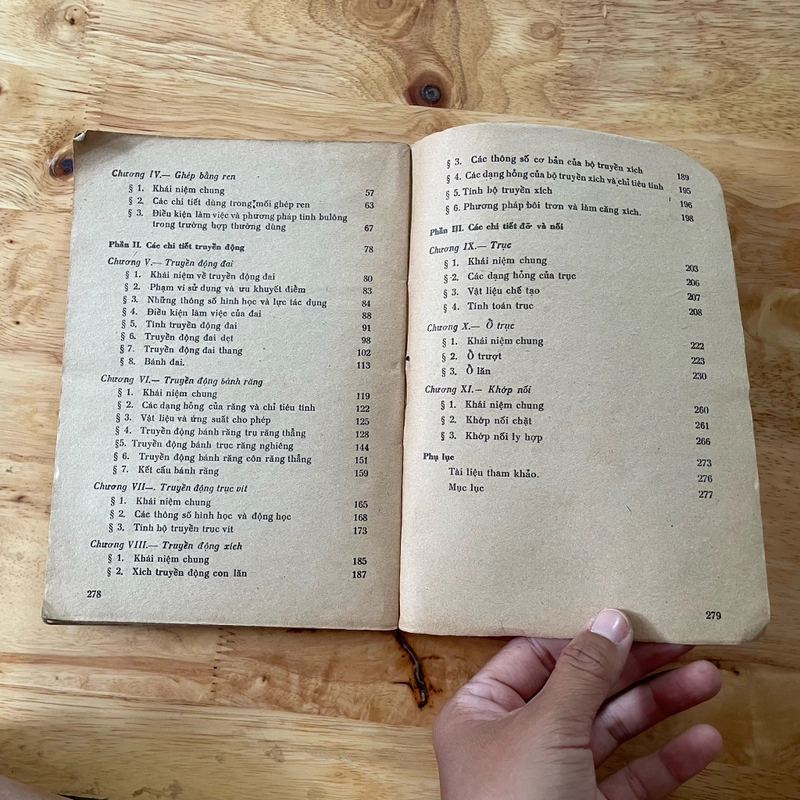 Chương IV.— Ghép bằng ren
§ 1. Khái niệm chung 57
§ 2. Các chi tiết dùng trong mối ghép ren 63
§ 3. Điều kiện làm việc và phương pháp tính bulông
trong trường hợp thường dùng 67
Phần II. Các chi tiết truyền động 78
Chương V.— Truyền động đai
§ 1. Khái niệm về truyền động đai 80
§ 2. Phạm vi sử dụng và ưu khuyết điểm 83
§ 3. Những thông số hình học và lực tác dụng 84
§ 4. Điều kiện làm việc của đai 88
§ 5. Tính truyền động đai 91
§ 6. Truyền động đai dẹt 98
§ 7. Truyền động đai thang 102
§ 8. Bánh đai. 113
Chương VI.— Truyền động bánh răng
§ 1. Khái niệm chung 119
§ 2. Các dạng hỏng của răng và chỉ tiêu tính 122
§ 3. Vật liệu và ứng suất cho phép 125
§ 4. Truyền động bánh răng trụ răng thẳng 128
§5. Truyền động bánh trục răng nghiêng 144
§ 6. Truyền động bánh răng côn răng thẳng 151
§ 7. Kết cấu bánh răng 159
Chương VII—. Truyền động trục vít
§ 1. Khái niệm chung 165
§ 2. Các thông số hình học và động học 168
§ 3. Tính bộ truyền trục vít 173
Chương VIII.— Truyền động xích
§ 1. Khái niệm chung 185
§ 2. Xích truyền động con lăn 187
278
§ 3. Các thông số cơ bản của bộ truyền xích 189
§ 4. Các dạng hỏng của bộ truyền xích và chỉ tiêu tính 195
§ 5. Tính bộ truyền xích 196
§ 6. Phương pháp bôi trơn và làm căng xích. 198
Phần III. Các chi tiết đỡ và nối
Chương IX.— Trục
§ 1. Khái niệm chung 203
§ 2. Các dạng hỏng của trục 206
§ 3. Vật liệu chế tạo 207
§ 4. Tính toán trục 208
Chương X.— Ổ trục
§ 1. Khái niệm chung 222
§ 2. Ổ trượt 223
§ 3. Ổ lăn 230
Chương XI.— Khớp nối
§ 1. Khái niệm chung 260
§ 2. Khớp nối chặt 261
§ 3. Khớp nối ly hợp 266
Phụ lục 273
Tài liệu tham khảo. 276
Mục lục 277
279